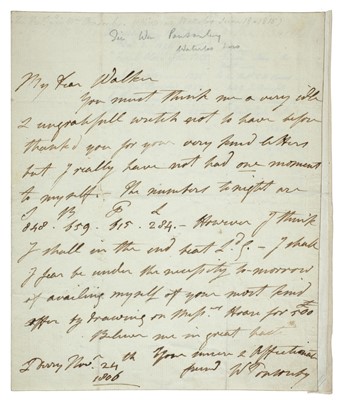 Sir Wm Ponsonby
Waterloo
My Dear Walker
You must think me a very idle
& ungratefull wretch not to have before
thank'd you for your very kind letters
but I really have not had one moment
to myself. - The numbers tonight are
848. 659. 615. 284. - However I think
I shall in the end beat Ld. - I shall
I fear be under the necessity tomorrow
of availing myself of your most kind
offer by drawing on Messrs Hoare for 500
Believe me in great haste
Your sincere & Affectionate
friend Wm Ponsonby
Derry Novr. 24th
1806